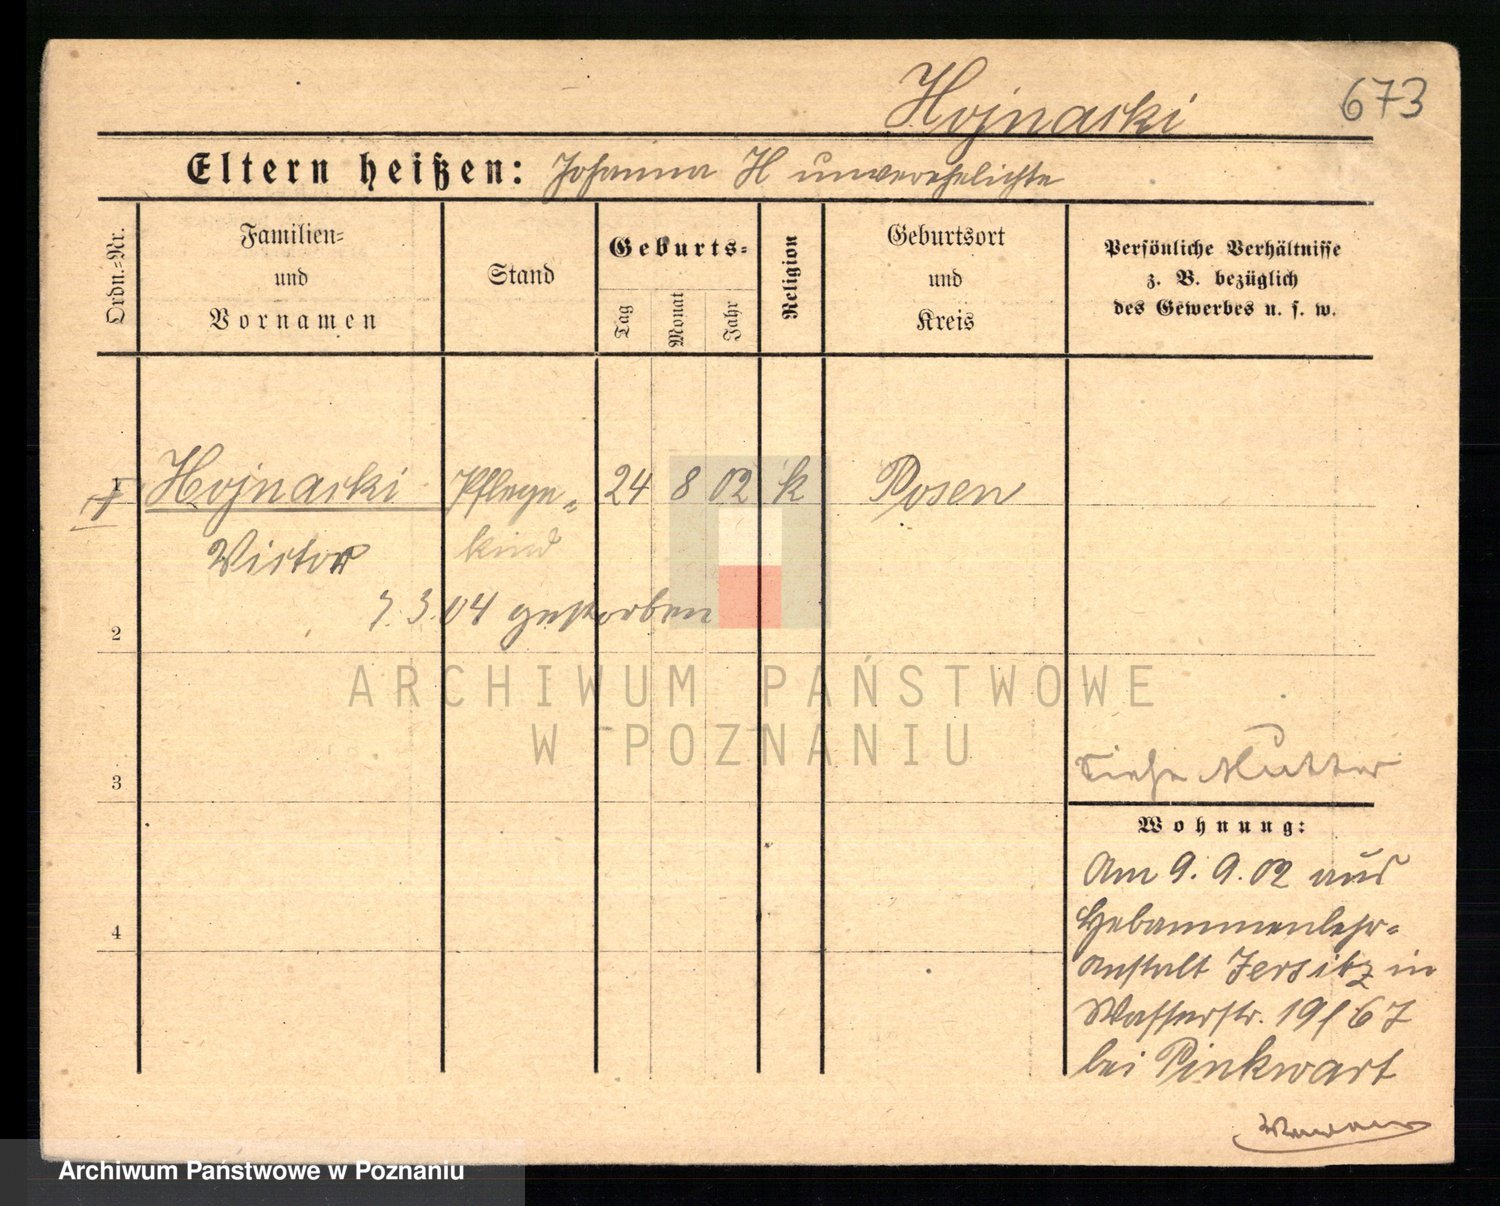 Hojnacki
673
Eltern heißen: Johanna H unverehelichte
Ordn.-Nr.
Familien-
und
Vornamen
Stand
Geburts-
Tag
Monat
Jahr
Religion
Geburtsort
und
Kreis
Persönliche Verhältnisse
z. B. bezüglich
des Gewerbes u. s. w.
1 Hojnacki Pflege- 24 8 02 k Posen
Victor kind
7.3.04 gestorben
2
ARCHIWUM PAŃSTWOWE
W POZNANIU
Siehe Mutter
3
Wohnung:
Am 9.9.02 aus
Hebammenlehr-
4
anstalt Jersitz in
Wasserstr. 19/67
bei Pinkwart
Archiwum Państwowe w Poznaniu